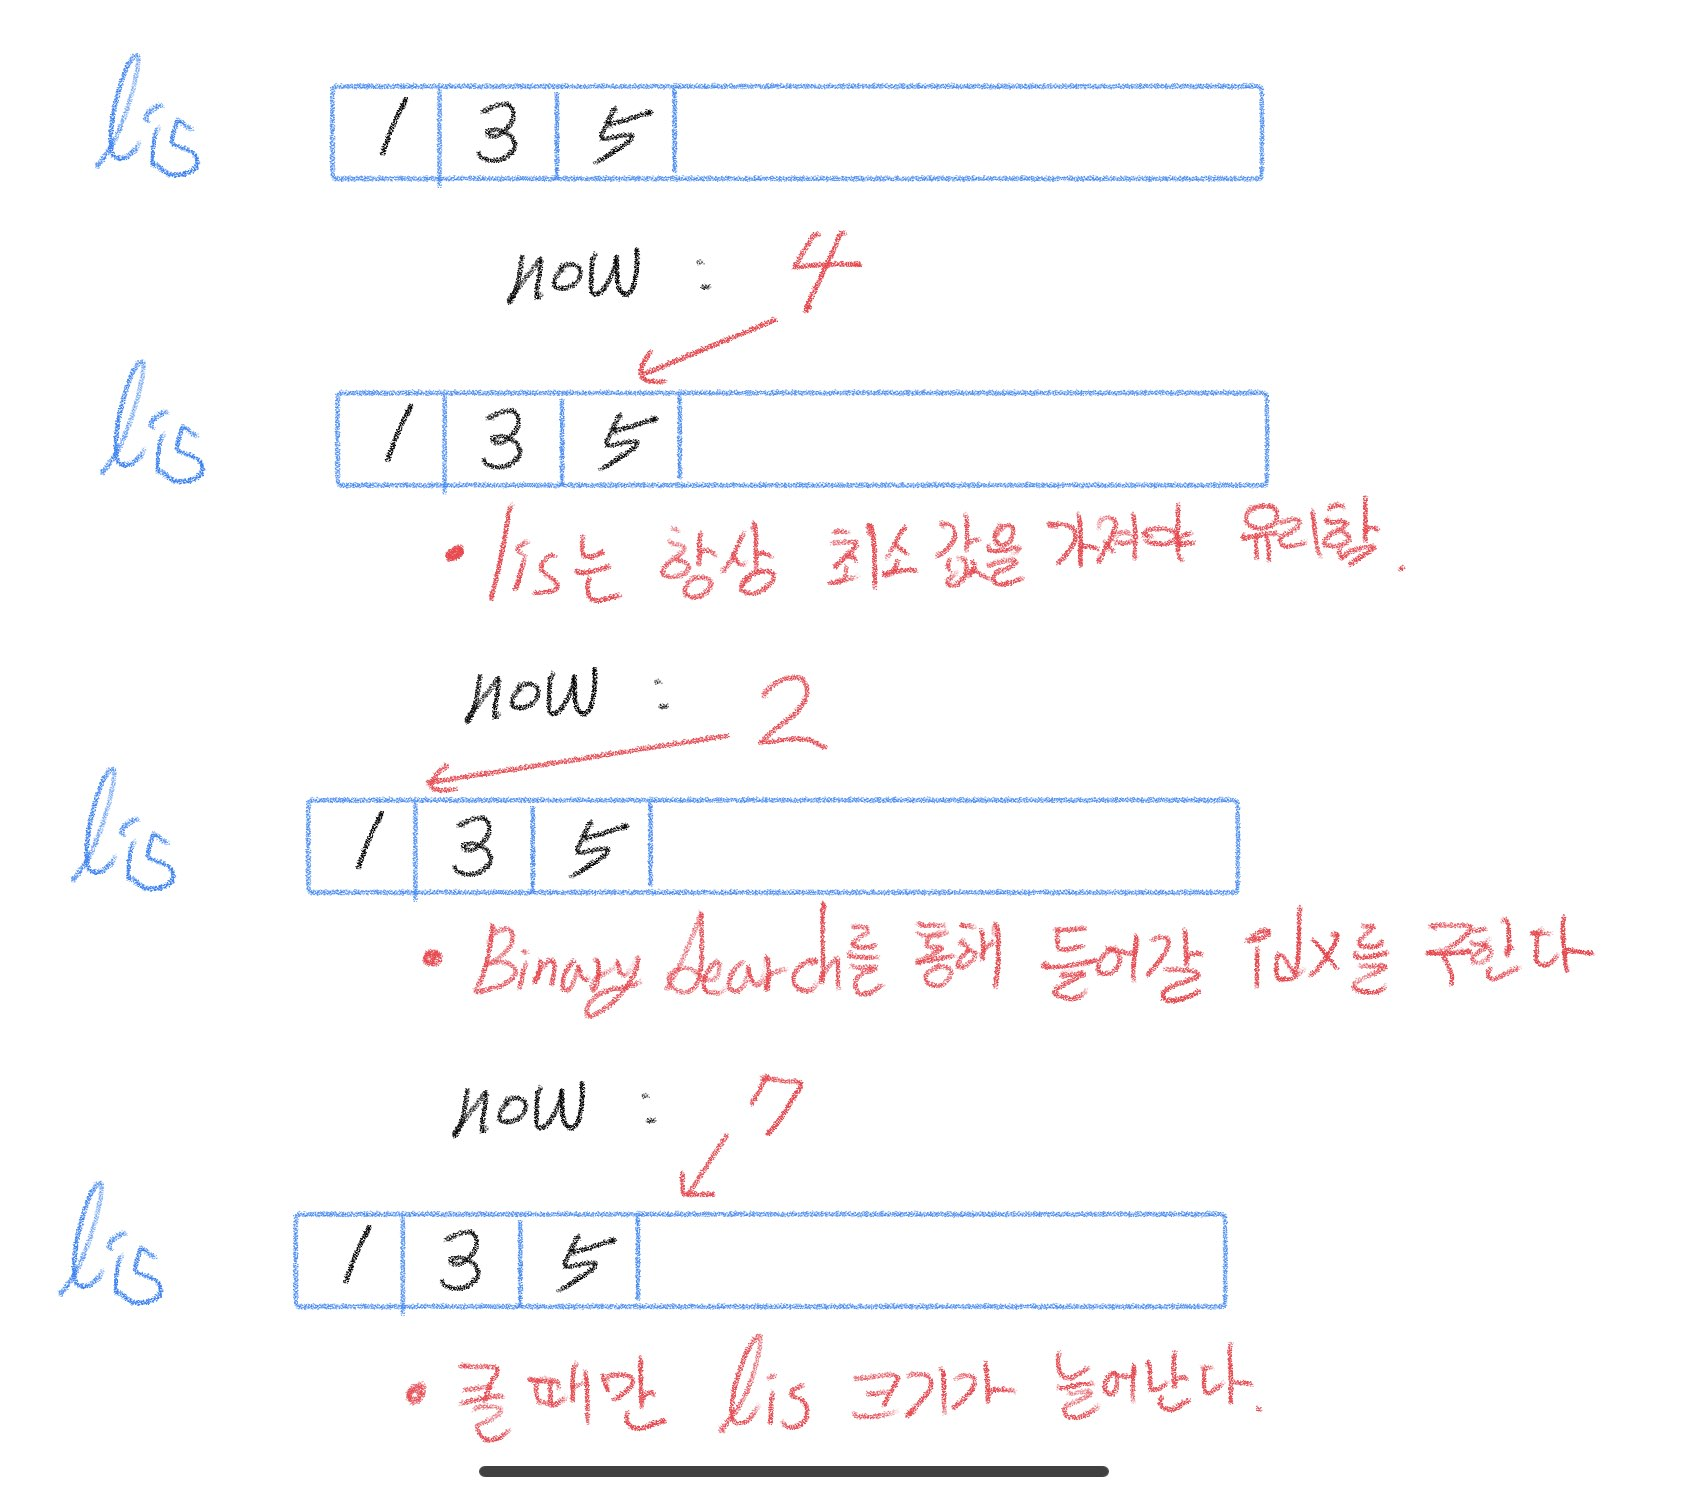 lis 1 3 5
now : 4
lis 1 3 5
• lis는 항상 최소값을 가져야 유리함.
now : 2
lis 1 3 5
• Binary Search를 통해 들어갈 idx를 구한다
now : 7
lis 1 3 5
• 클 때만 lis 크기가 늘어난다.